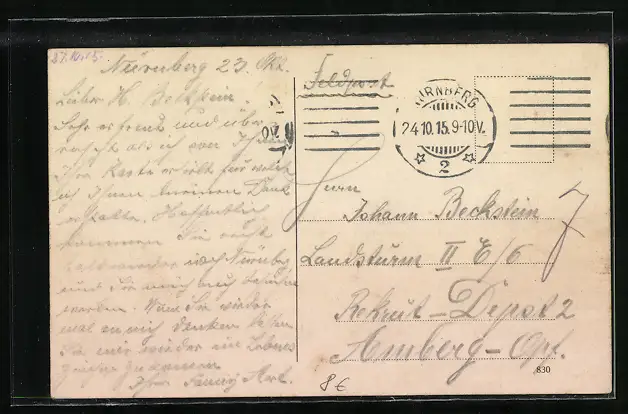 27.10.15.
Nürnberg 23. Okt.
Lieber H. Beckstein!
Sehr erfreut und über
rascht als ich von Ihnen
Ihre Karte erhielt für welche
ich Ihnen meinen Dank
erstatte. Hoffentlich
kommen Sie recht
nach Nürnberg
und Sie mich auch besuchen
werden. Wenn Sie wieder
mal an mich denken
Sie mir wieder ein Lebens
zeichen zukommen
Ihre Fanny
Feldpost
NÜRNBERG
24.10.15.9-10V.
2
Herrn
Johann Beckstein
Landsturm II E/6
Rekrut-Depot 2
Amberg-Opf.
830
8€